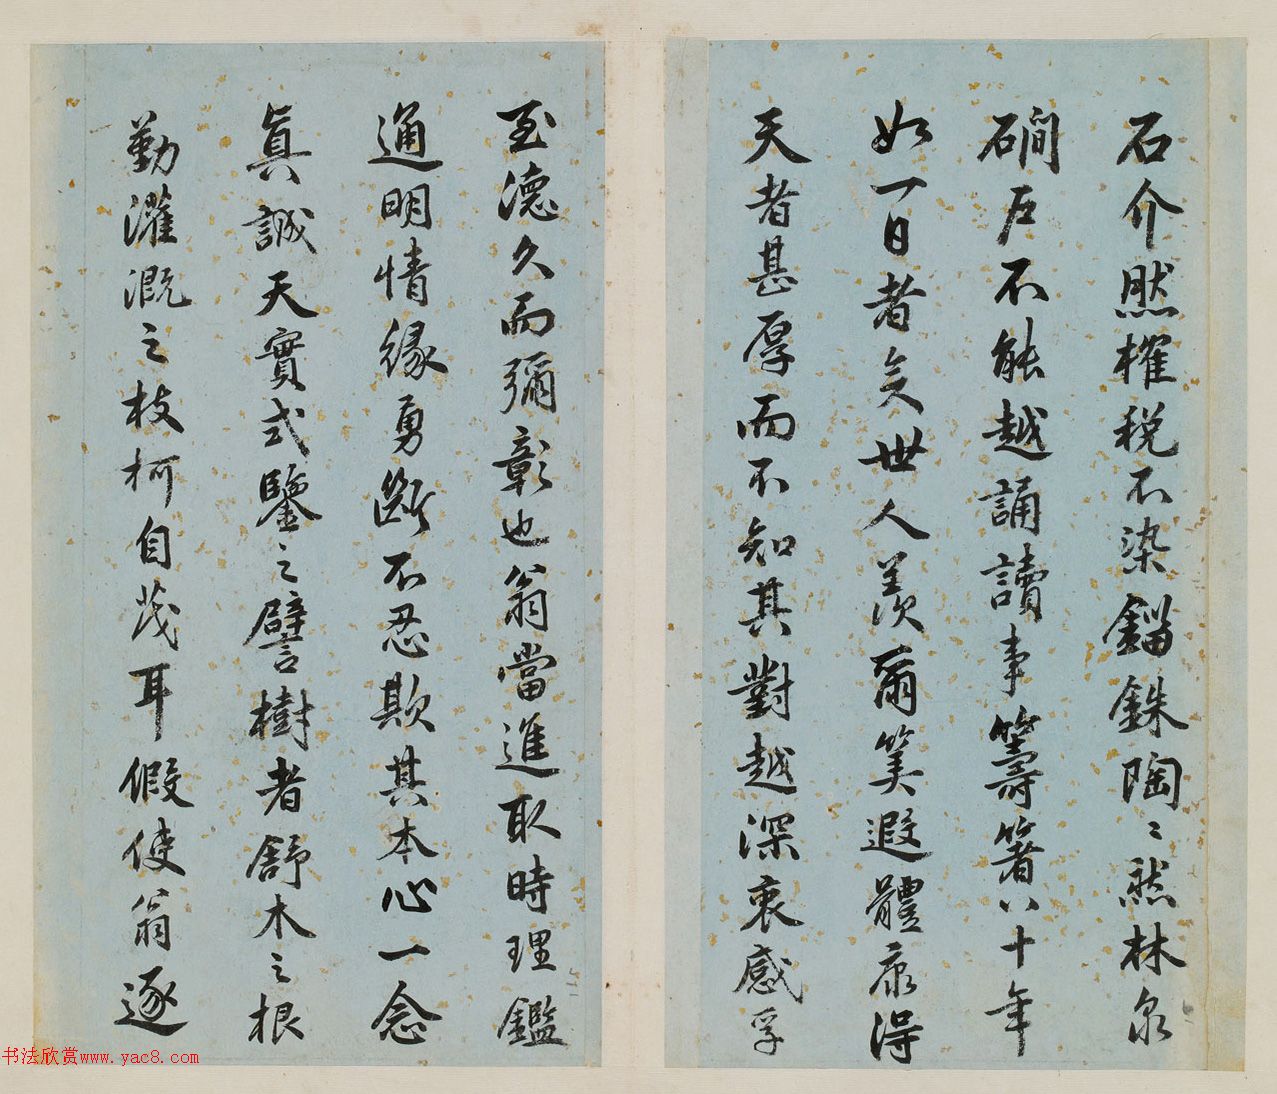 石介然榷税不染錙銖陶〻然林泉
磵户不能越誦讀事籌箸八十年
如一日者矣世人羡爾筭遐體康得
天者甚厚而不知其對越深衷感孚
至德久而彌彰也翁當進取時理鑑
通明情緣勇斷不忍欺其本心一念
真誠天實式鑒之譬樹者舒木之根
勤灌溉之枝柯自茂耳假使翁逐
书法欣赏www.yac8.com